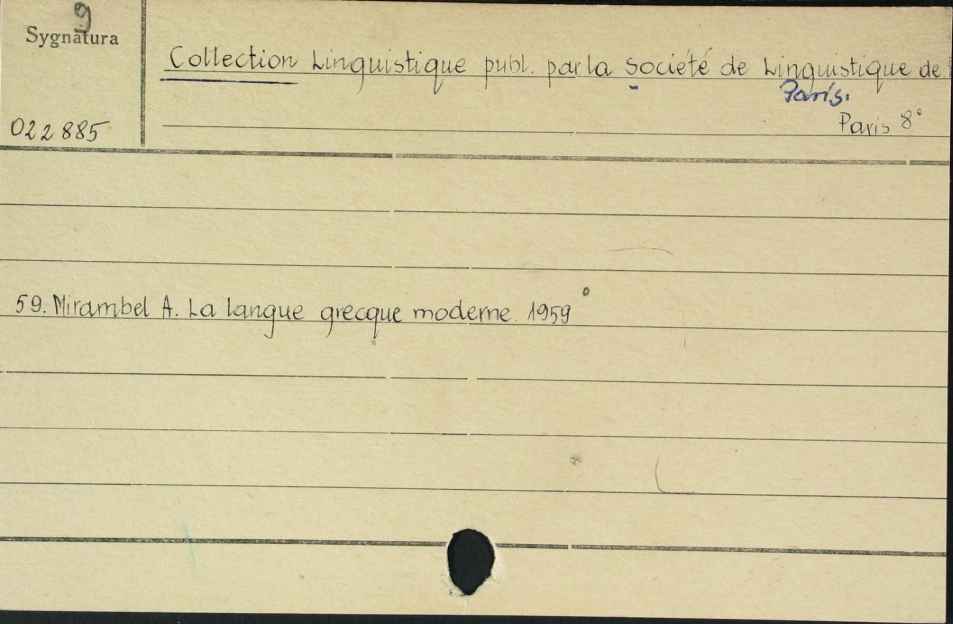 9
Sygnatura
022885
Collection Linguistique publ. par la Société de Linguistique de
Paris.
Paris 8°
59. Mirambel A. La langue grecque moderne. 1959